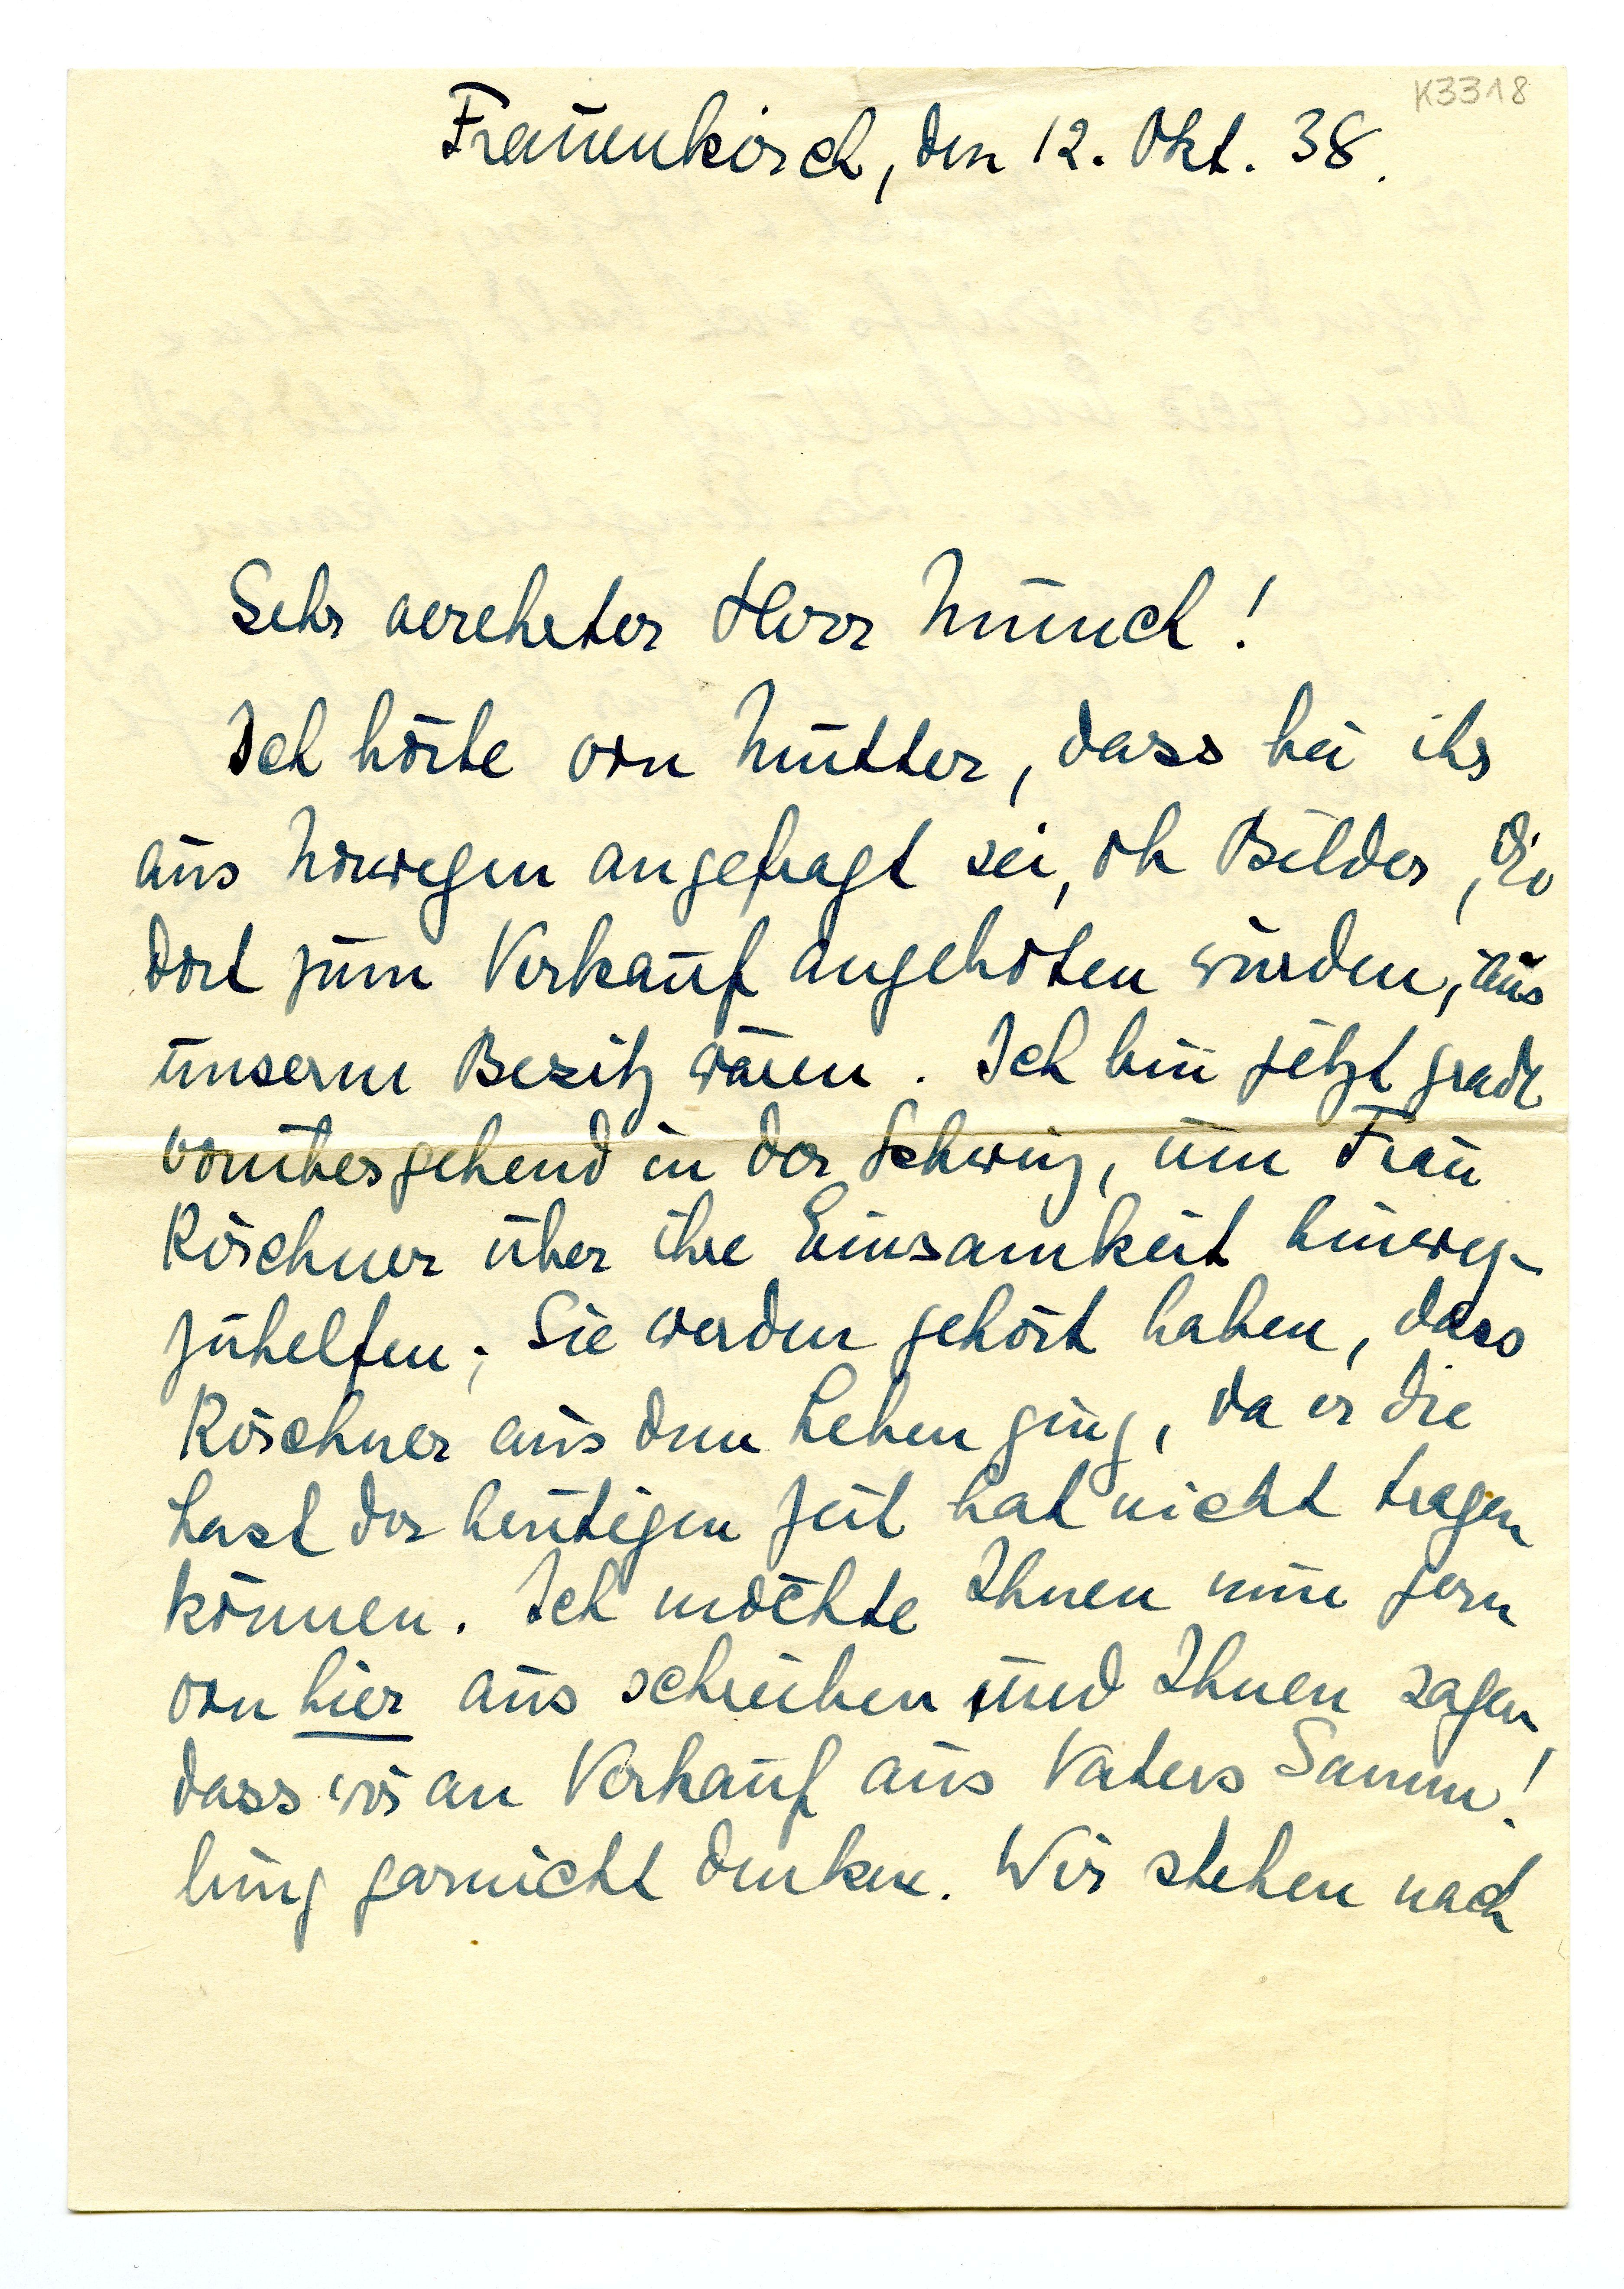 K3318
Frauenkirch, den 12. Okt. 38.
Sehr verehrter Herr Munch!
Ich hörte von Mutter, dass bei ihr
aus Norwegen angefragt sei, ob Bilder, die
dort zum Verkauf angeboten würden, aus
unserm Besitz wären. Ich bin jetzt grade
vorübergehend in der Schweiz, um Frau
Kirchner über ihre Einsamkeit hinweg-
zuhelfen; Sie werden gehört haben, dass
Kirchner aus dem Leben ging, da er die
Last der heutigen Zeit hat nicht tragen
können. Ich möchte Ihnen nun gern
von hier aus schreiben und Ihnen sagen,
dass wir an Verkauf aus Vaters Samm!
lung garnicht denken. Wir stehen nach